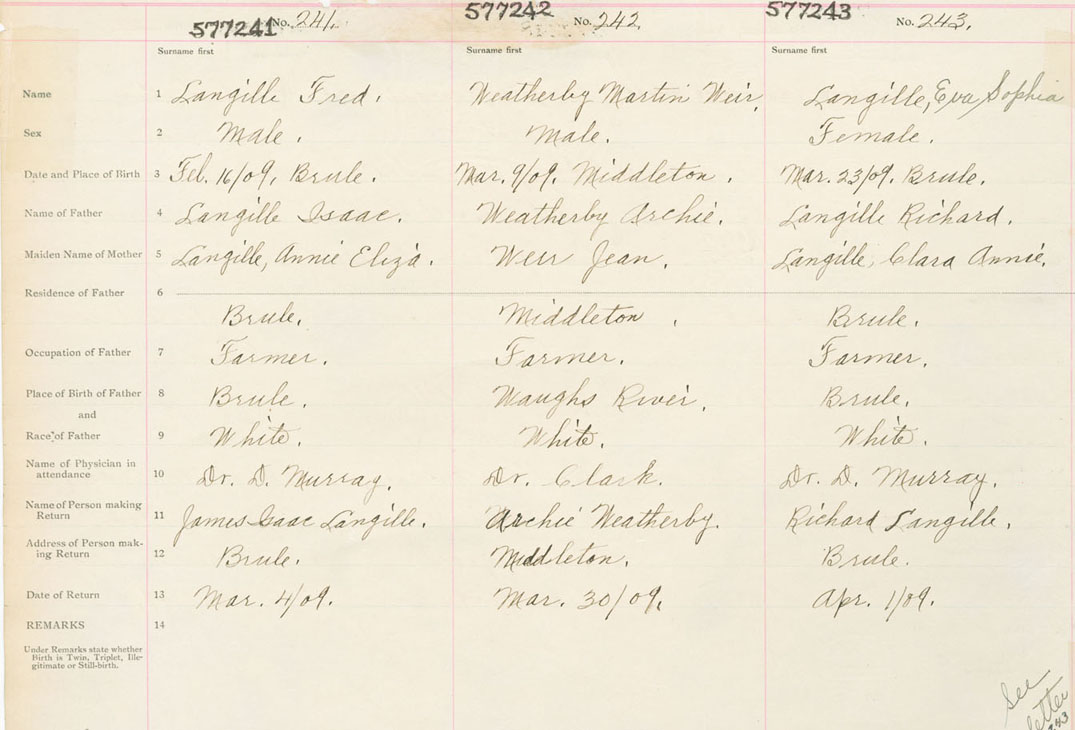 577241 No. 241. 577242 No. 242. 577243 No. 243.
Surname first Surname first Surname first
Name 1 Langille Fred. Weatherby Martin Weir. Langille, Eva Sophia
Sex 2 Male. Male. Female.
Date and Place of Birth 3 Feb. 16/09. Brule. Mar. 9/09. Middleton. Mar. 23/09. Brule.
Name of Father 4 Langille Isaac. Weatherby Archie. Langille Richard.
Maiden Name of Mother 5 Langille, Annie Eliza. Weir Jean. Langille, Clara Annie.
Residence of Father 6
Brule. Middleton. Brule.
Occupation of Father 7 Farmer. Farmer. Farmer.
Place of Birth of Father 8 Brule. Waughs River. Brule.
and
Race of Father 9 White. White. White.
Name of Physician in
attendance 10 Dr. D. Murray. Dr. Clark. Dr. D. Murray.
Name of Person making
Return 11 James Isaac Langille. Archie Weatherby. Richard Langille.
Address of Person mak-
ing Return 12 Brule. Middleton. Brule.
Date of Return 13 Mar. 4/09. Mar. 30/09. Apr. 1/09.
REMARKS 14
Under Remarks state whether
Birth is Twin, Triplet, Ille-
gitimate or Still-birth.
See
letter
243